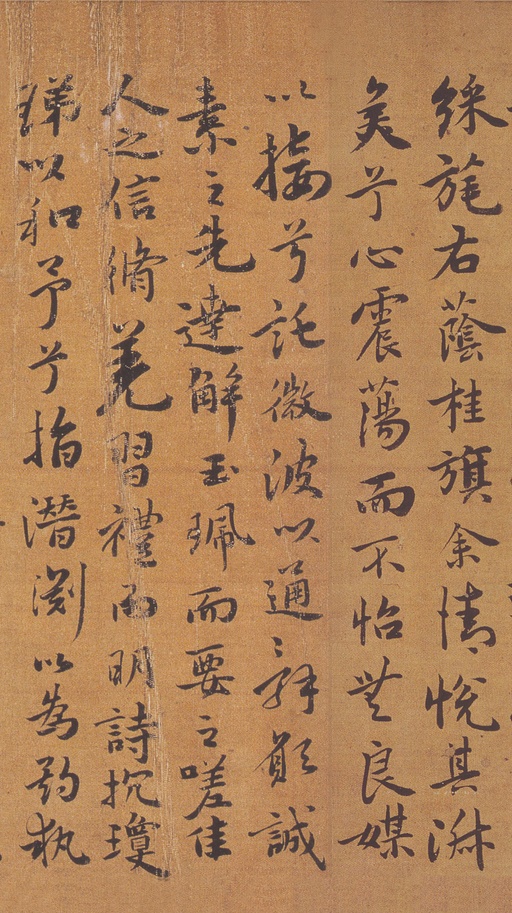 綵旄右蔭桂旗余情悅其淑
美兮心震蕩而不怡無良媒
以接兮託微波以通〻辭願誠
素之先達解玉珮而要之嗟佳
人之信脩羌習禮而明詩抗瓊
珶以和予兮指潛淵以為期執